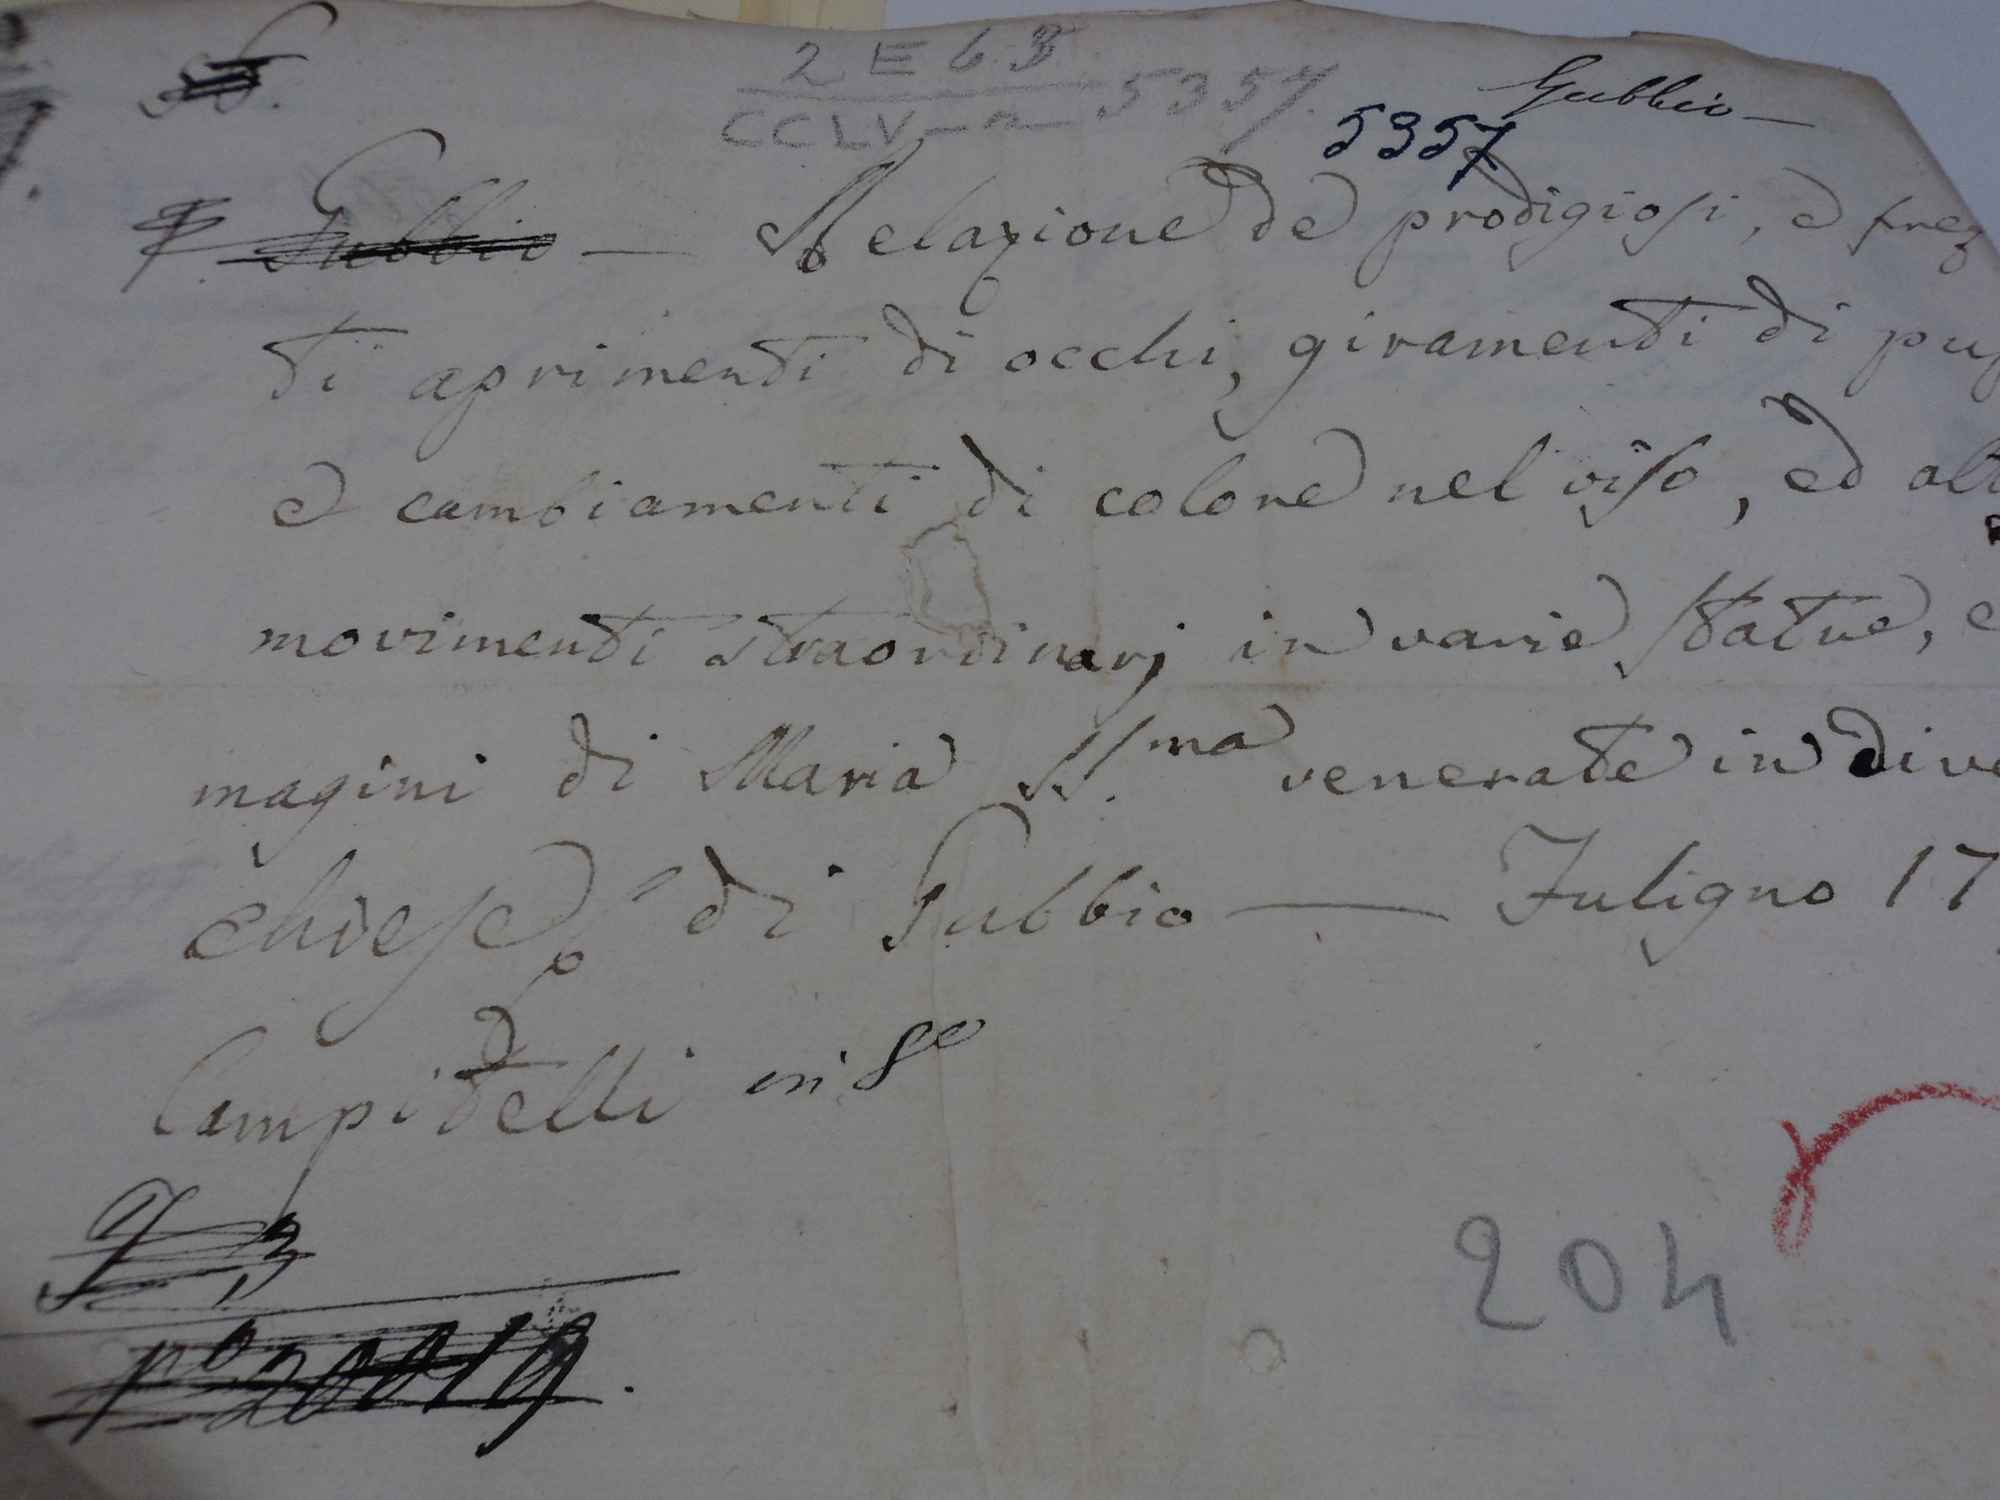 2 E 63
CCLV-a 5357.
Gubbio —
5357
Gubbio — Relazione de prodigiosi, e freq
ti aprimenti di occhi, giramenti di pup
e cambiamenti di colore nel viso, ed alt
movimenti straordinarj in varie statue, e
magini di Maria SS.ma venerate in dive
chiese di Gubbio — Fuligno 17
Campitelli in 8o
204